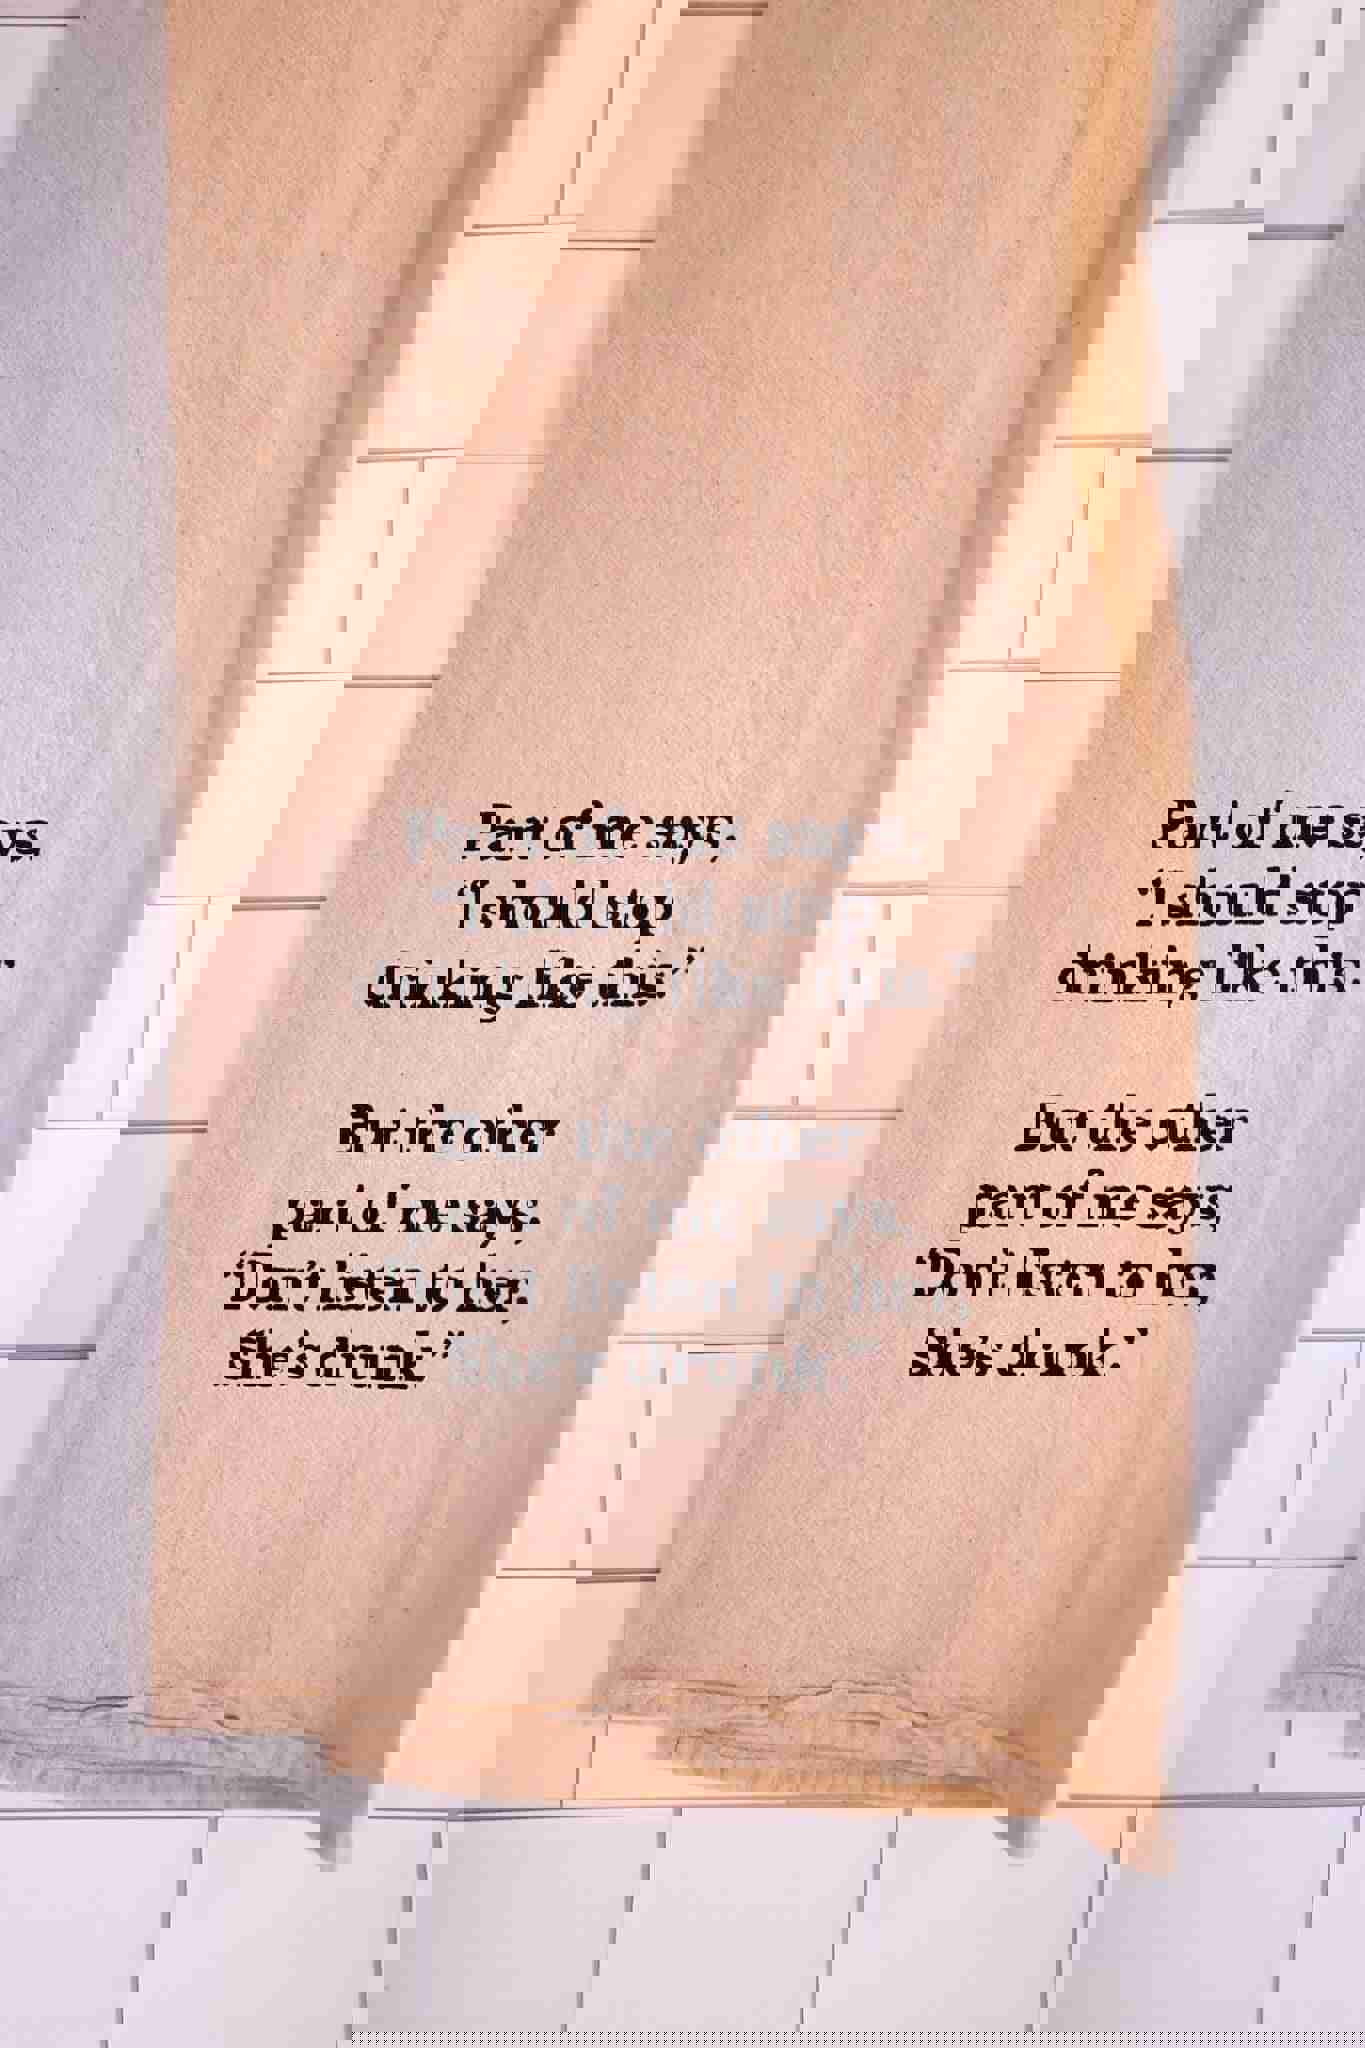 Part of me says,
"I should stop
drinking like this."
But the other
part of me says,
"Don't listen to her,
She's drunk."